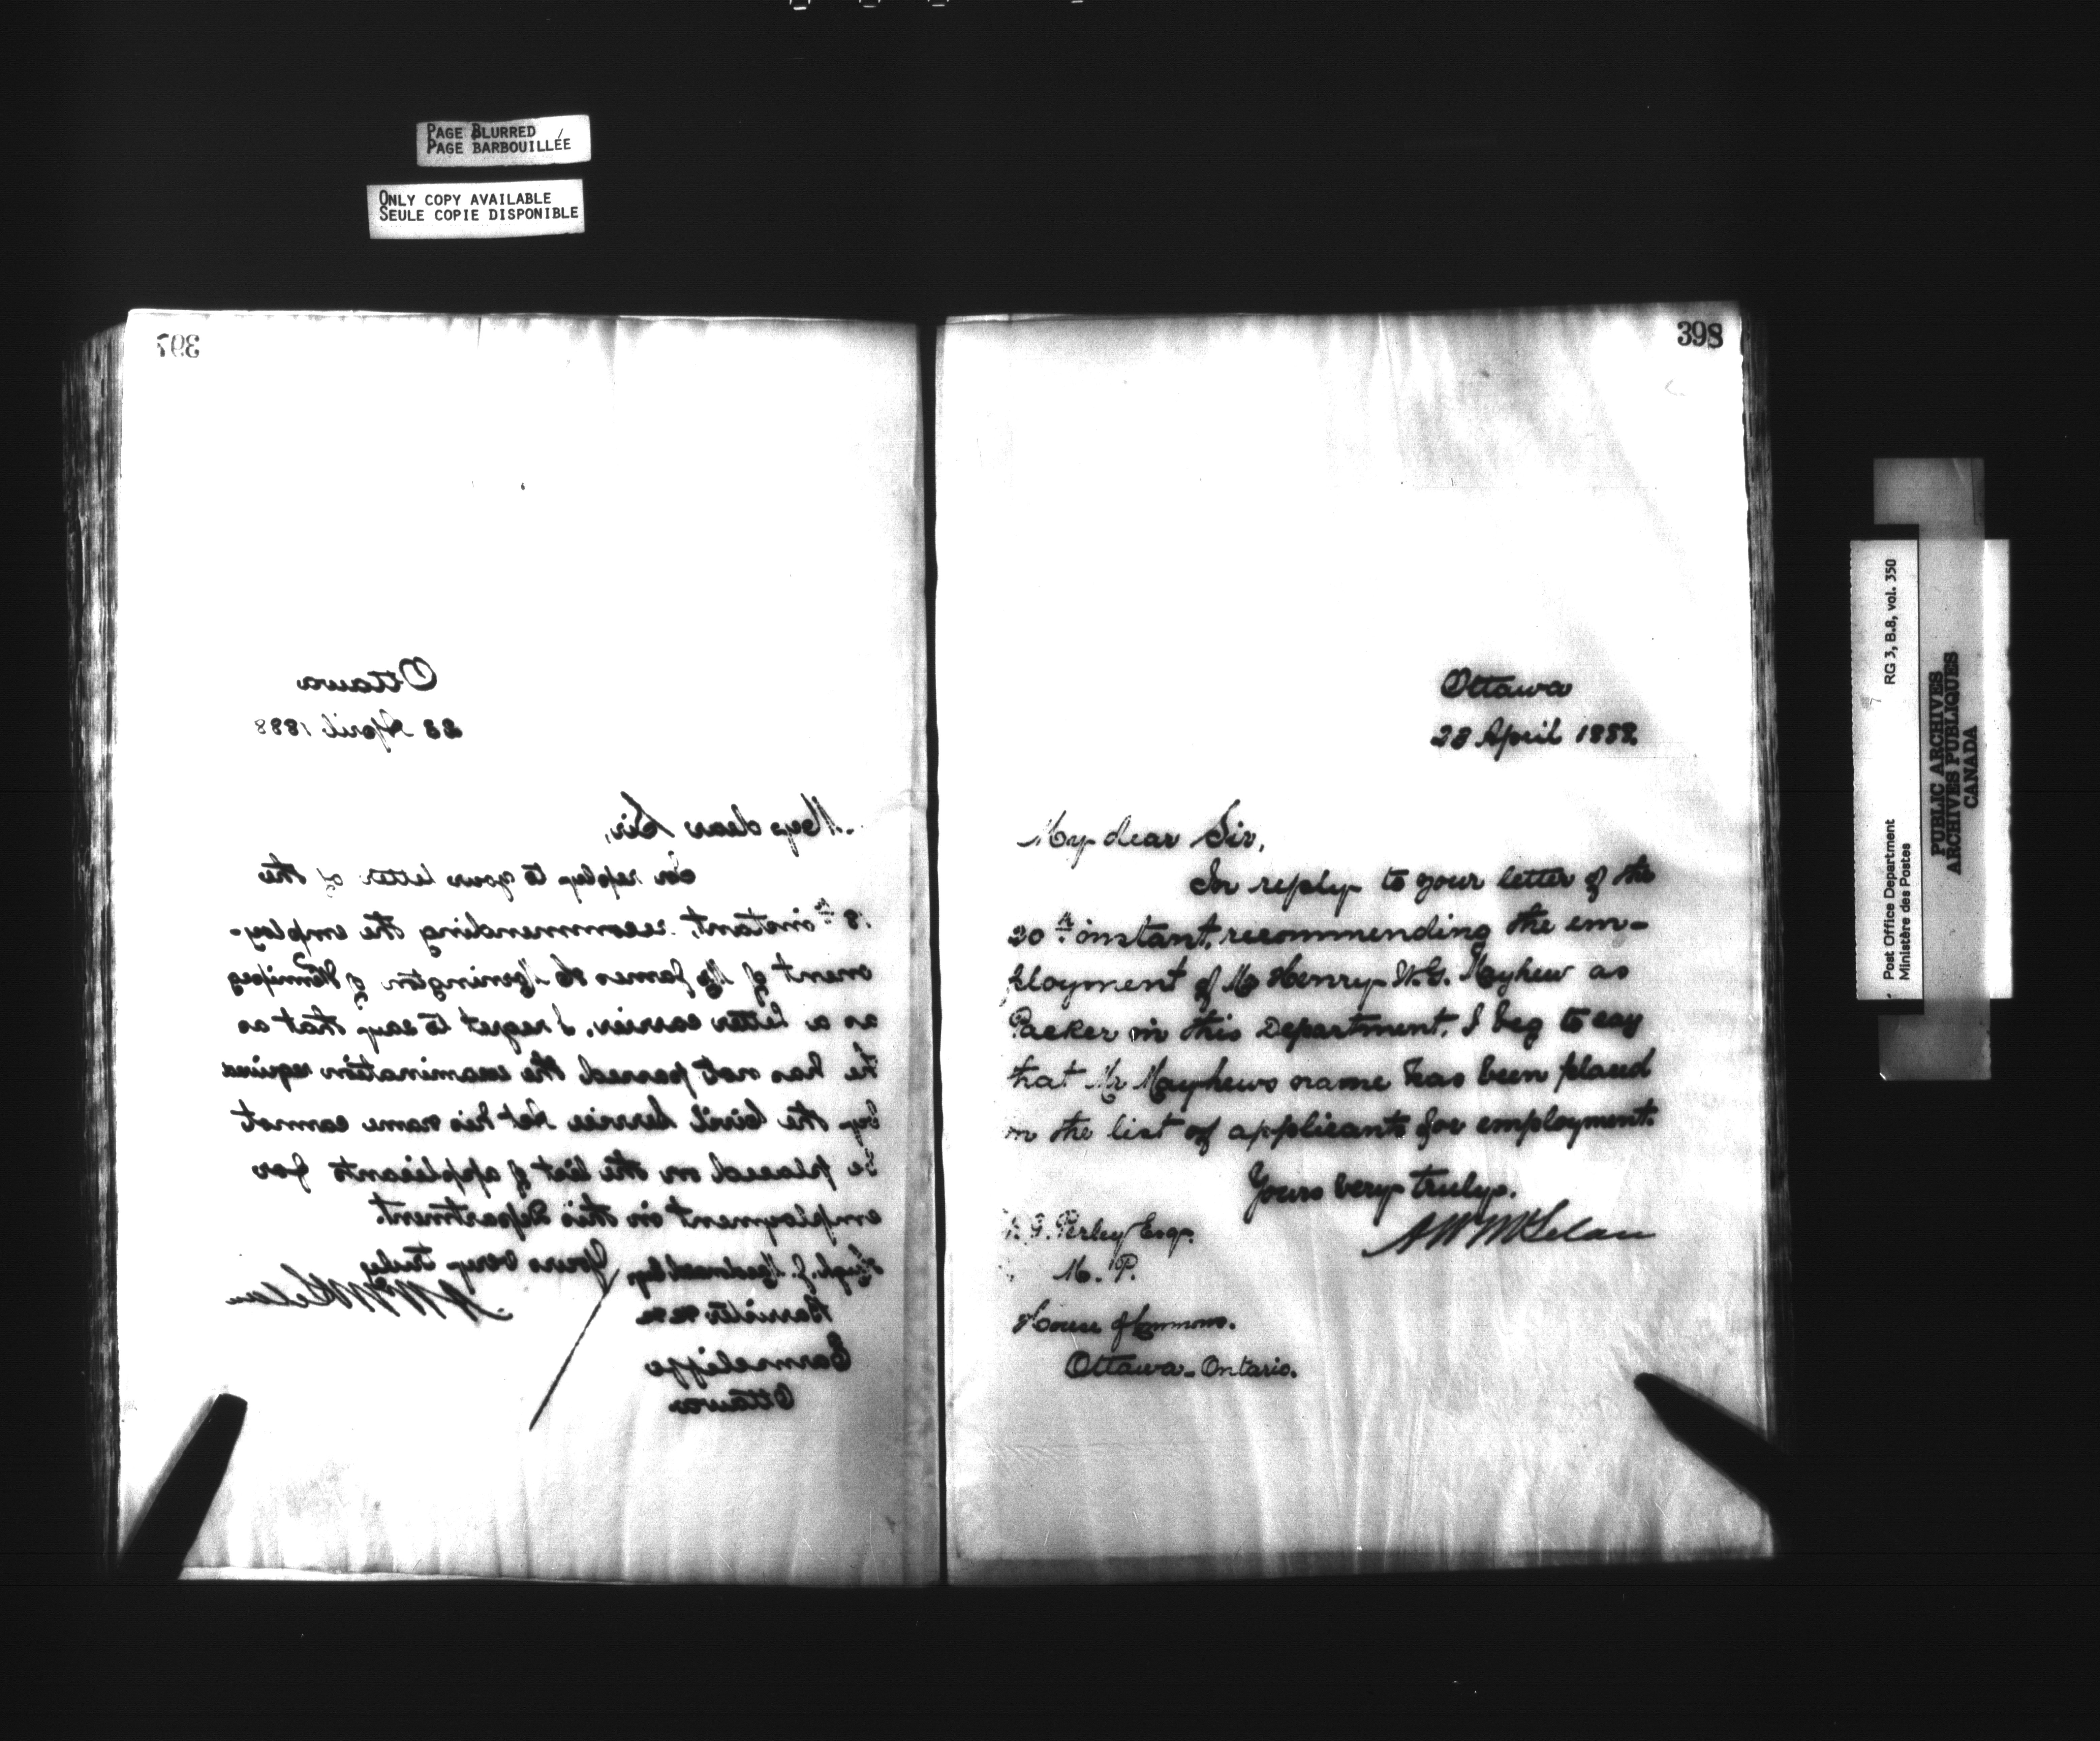 PAGE BLURRED
PAGE BARBOUILLÉE
ONLY COPY AVAILABLE
SEULE COPIE DISPONIBLE
397
Ottawa
23 April 1888
My dear Sir,
In reply to your letter of the
18th instant, recommending the employ-
ment of Mr James H. of Winnipeg
as a letter carrier, I regret to say that as
he has not passed the examination required
by the Civil Service Act his name cannot
be placed on the list of applicants for
employment in this Department.
Yours very truly
A W McLelan
Hugh J.
Barrister
Earnscliffe
Ottawa
398
Ottawa
23 April 1888.
My dear Sir,
In reply to your letter of the
20th instant, recommending the em-
ployment of Mr Henry W. G. Mayhew as
Packer in this Department, I beg to say
that Mr Mayhews name has been placed
on the list of applicants for employment.
Yours very truly.
A W McLelan
G. Perley Esq.
M. P.
House of Commons.
Ottawa - Ontario.
Post Office Department
Ministère des Postes
RG 3, B.8, vol. 350
PUBLIC ARCHIVES
ARCHIVES PUBLIQUES
CANADA